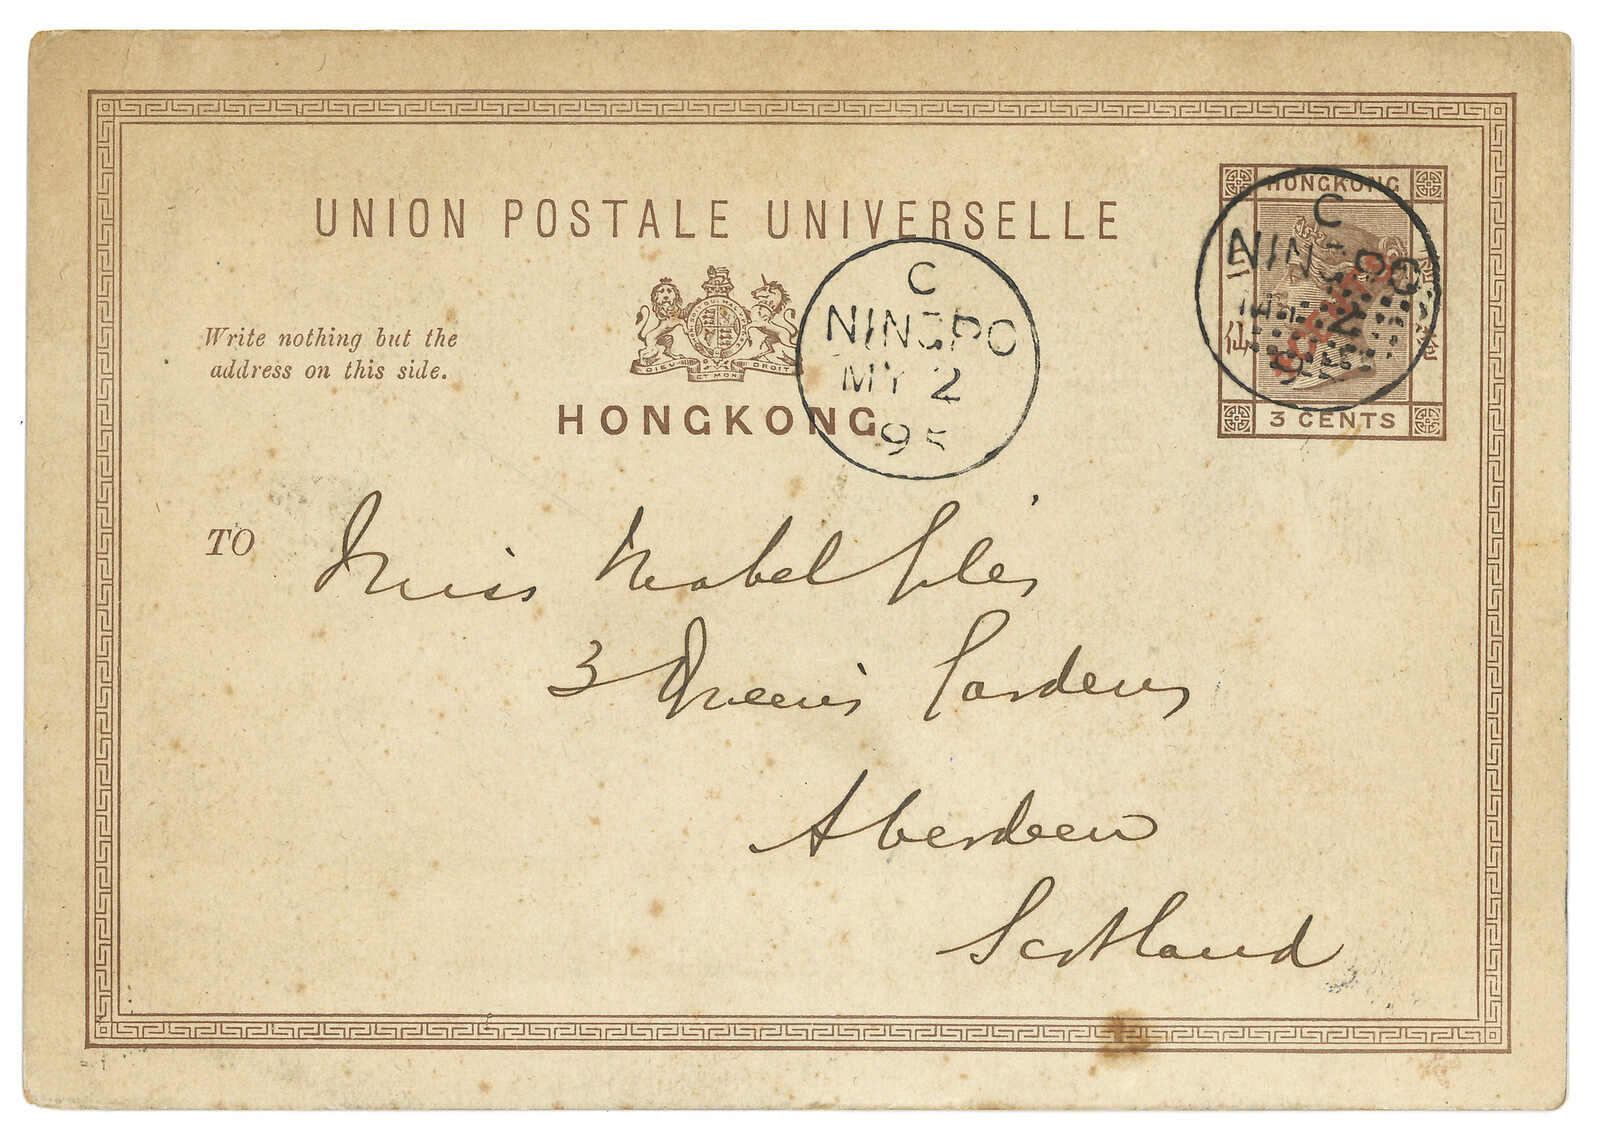 UNION POSTALE UNIVERSELLE
HONGKONG
C
NINGPO
MY 2
95
3 CENTS
仙
Write nothing but the
address on this side.
DIEU ET MON DROIT
HONGKONG
C
NINGPO
MY 2
95
TO Miss Mabel Giles
3 Queen's Gardens
Aberdeen
Scotland